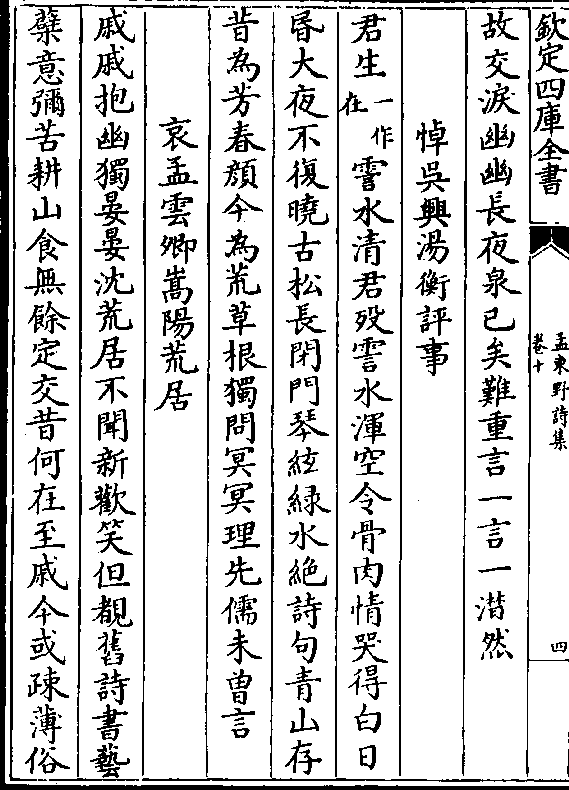 欽定四庫全書
孟東野詩集
卷十
四
故交淚幽幽長夜泉已矣難重言一言一潸然
悼吳興湯衡評事
君生一作在霅水清君歿霅水渾空令骨肉情哭得白日
昏大夜不復曉古松長閉門琴絃緑水絶詩句青山存
昔為芳春顔今為荒草根獨問冥冥理先儒未曽言
哀孟雲卿嵩陽荒居
戚戚抱幽獨晏晏沈荒居不聞新歡笑但覩舊詩書藝
蘗意彌苦耕山食無餘定交昔何在至戚今或疎薄俗